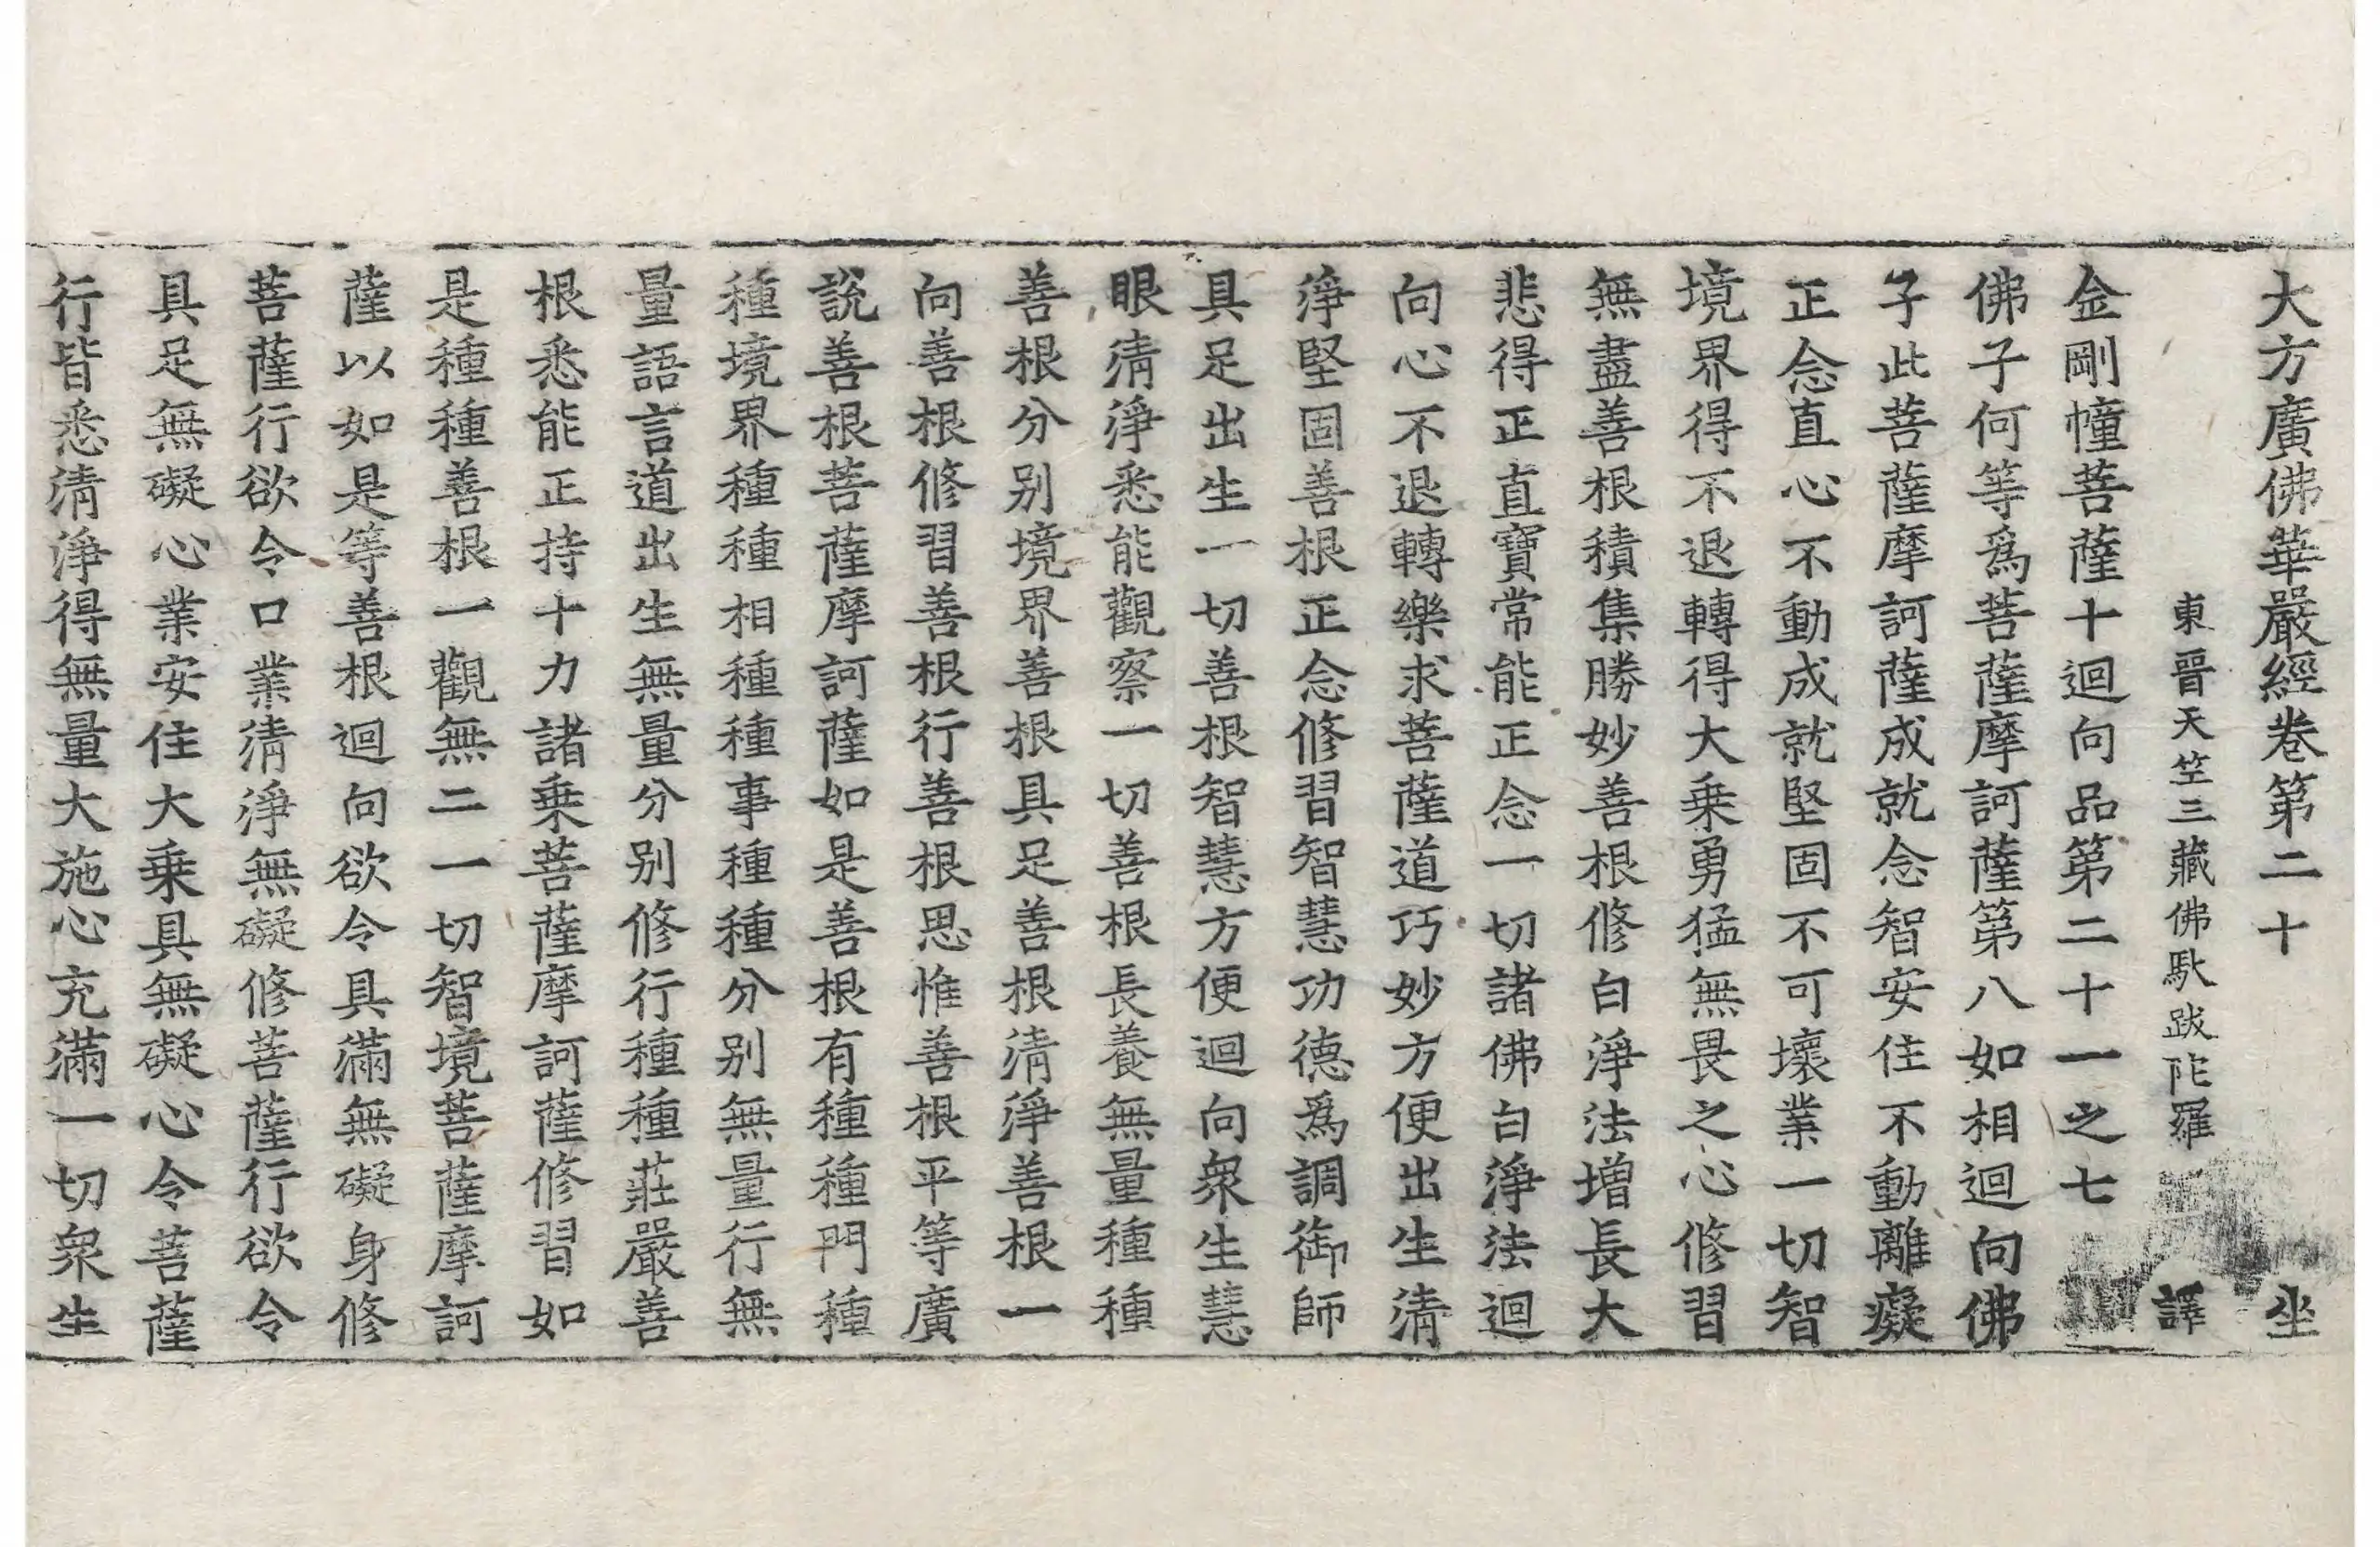 大方廣佛華嚴經卷第二十 坐
東晉天竺三藏佛馱跋陀羅 譯
金剛幢菩薩十迴向品第二十一之七
佛子何等爲菩薩摩訶薩第八如相迴向佛
子此菩薩摩訶薩成就念智安住不動離癡
正念直心不動成就堅固不可壞業一切智
境界得不退轉得大乗勇猛無畏之心修習
無盡善根積集勝妙善根修白淨法増長大
悲得正直寶常能正念一切諸佛白淨法迴
向心不退轉樂求菩薩道巧妙方便出生清
淨堅固善根正念修習智慧功德爲調御師
具足出生一切善根智慧方便迴向衆生慧
眼清淨悉能觀察一切善根長養無量種種
善根分别境界善根具足善根清淨善根一
向善根修習善根行善根思惟善根平等廣
說善根菩薩摩訶薩如是善根有種種門種
種境界種種相種種事種種分别無量行無
量語言道出生無量分别修行種種莊嚴善
根悉能正持十力諸乗菩薩摩訶薩修習如
是種種善根一觀無二一切智境菩薩摩訶
薩以如是等善根迴向欲令具滿無礙身修
菩薩行欲令口業清淨無礙修菩薩行欲令
具足無礙心業安住大乗具無礙心令菩薩
行皆悉清淨得無量大施心充滿一切衆生